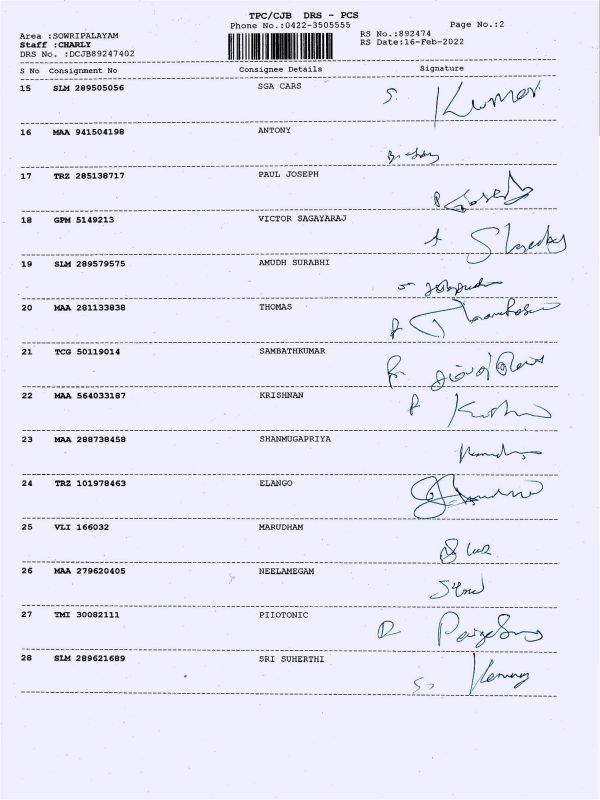 TPC/CJB DRS - PCS
Phone No.:0422-3505555 Page No.:2
Area :SOWRIPALAYAM RS No.:892474
Staff :CHARLY RS Date:16-Feb-2022
DRS No. :DCJB89247402
S No Consignment No Consignee Details Signature
15 SLM 289505056 SGA CARS S. Kumar
16 MAA 941504198 ANTONY
17 TRZ 285138717 PAUL JOSEPH
18 GPM 5149213 VICTOR SAGAYARAJ
19 SLM 289579575 AMUDH SURABHI
20 MAA 281133838 THOMAS
21 TCG 50119014 SAMBATHKUMAR
22 MAA 564033187 KRISHNAN
23 MAA 288738458 SHANMUGAPRIYA
24 TRZ 101978463 ELANGO
25 VLI 166032 MARUDHAM
26 MAA 279620405 NEELAMEGAM
27 TMI 30082111 PIIOTONIC
28 SLM 289621689 SRI SUHERTHI